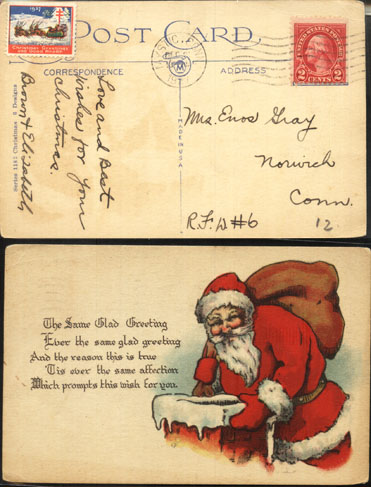 1927
Christmas Greetings
POST CARD
CORRESPONDENCE
ADDRESS
UNITED STATES POSTAGE
2 CENTS 2
Love and Best
Wishes for Your
Christmas.
Brown & Elizabeth
Series 1181 Christmas 8 Designs
MADE IN U.S.A.
Mrs. Enos Gray
Norwich
Conn.
R.F.D #6
12.
The Same Glad Greeting
Ever the same glad greeting
And the reason this is true
'Tis ever the same affection
Which prompts this wish for you.